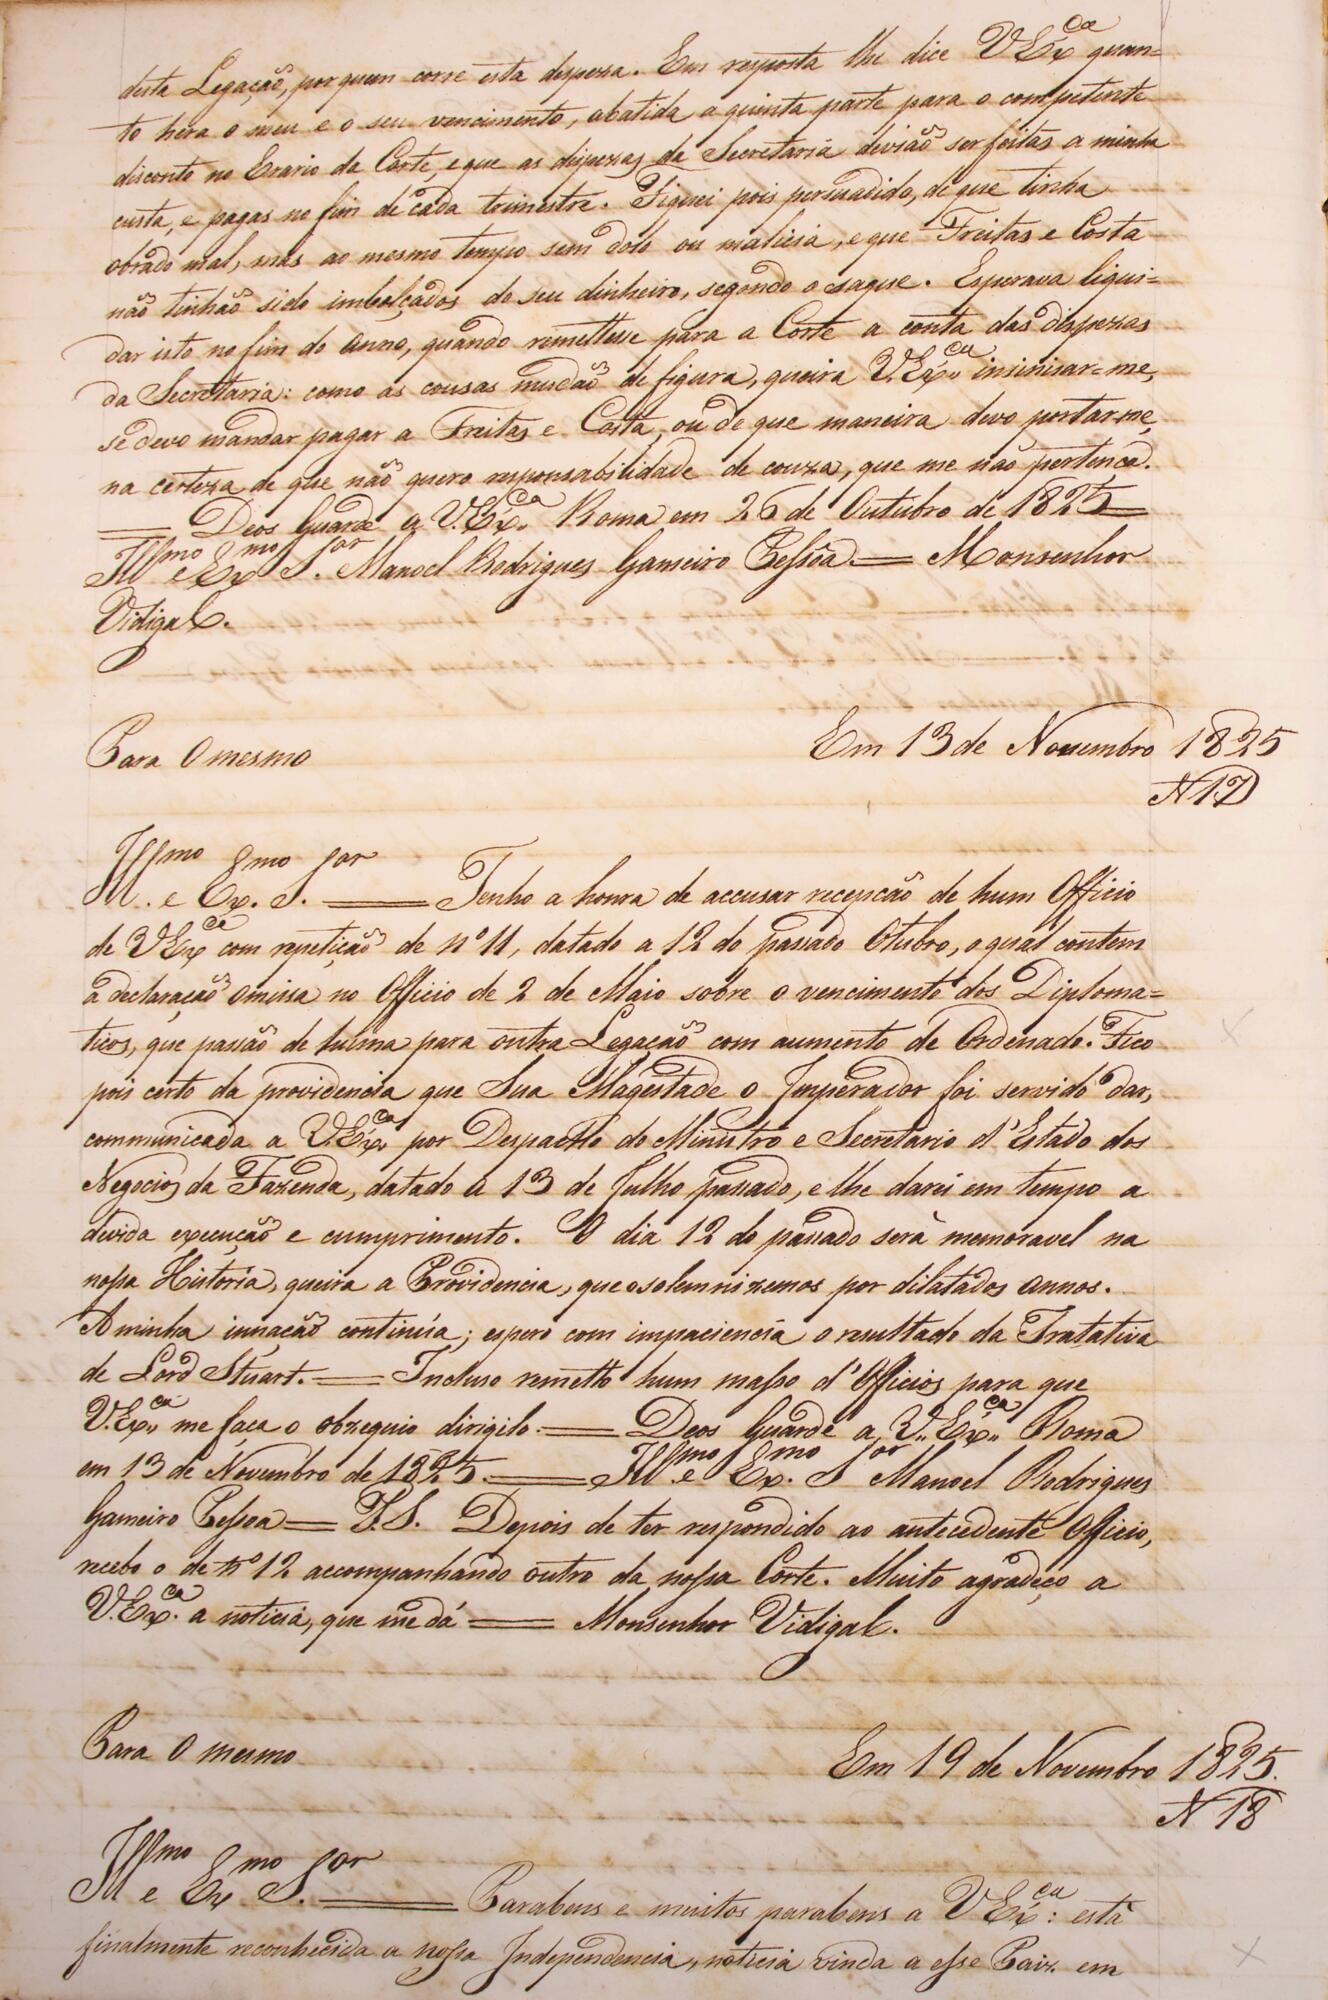 desta Legação, por quem corre esta despeza. Em resposta lhe dice V Ex.ca quan=
to hera o meu e o seu vencimento, abatida a quinta parte para o competente
disconto no Erario da Corte, e que as dispezas da Secretaria divião ser feitas a minha
custa, e pagas no fim de cada trimestre. Fiquei pois persuadido, de que tinha
obrado mal, mas ao mesmo tempo sem dolo ou malicia, e que Freitas e Costa
não tinhão sido imbolçados do seu dinheiro, segondo o saque. Esperava liqui=
dar isto no fim do Anno, quando remettesse para a Corte a conta das dispezas
da Secretaria: como as cousas mudão de figura, queira V. Ex.ca insinuar=me,
se devo mandar pagar a Freitas e Costa, ou de que maneira devo portar-me,
na certeza de que não quero responsabilidade de couza, que me não pertença.
== Deos Guarde a V. Ex.ca Roma em 26 de Outubro de 1825 ==
Ill.mo e Ex.mo S.or Manoel Rodrigues Gameiro Pessôa == Monsenhor
Vidigal.
Para O mesmo
Em 13 de Novembro 1825
N 17
Ill.mo e Ex.mo S.or == Tenho a honra de accusar recepcão de hum Officio
de V Ex.ca com repetição de nº 11, datado a 12 do passado Otubro, o qual contem
a declaração omissa no Officio de 2 de Maio sobre o vencimento dos Diploma=
ticos, que passão de huma para outra Legação com aumento de Ordenado. Fico
pois certo da providencia que Sua Magestade o Imperador foi servido dar,
communicada a V. Ex.ca por Despacho do Ministro e Secretario d'Estado dos
Negocios da Fazenda, datado a 13 de Julho passado, e lhe darei em tempo a
devida execução e cumprimento. O dia 12 do passado será memoravel na
nossa Historia, queira a Providencia, que o solemnizemos por dilatados annos.
A minha innação continúa; espero com impaciencia o resultado da Tratativa
de Lord Stuart. == Incluso remetto hum masso d'Officios para que
V. Ex.ca me faça o obzequio dirigilo. == Deos Guarde a V. Ex.ca Roma
em 13 de Novembro de 1825. == Ill.mo e Ex.mo S.or Manoel Rodrigues
Gameiro Pessoa == P.S. Depois de ter respondido ao antecedente Officio,
recebo o de nº 12 accompanhando outro da nossa Corte. Muito agradeço a
V. Ex.ca a noticia, que me dá == Monsenhor Vidigal.
Para O mesmo
Em 19 de Novembro 1825.
N 18
Ill.mo e Ex.mo S.or == Parabens e muitos parabens a V Ex.ca: está
finalmente reconhecida a nossa Independencia, noticia vinda a esse Paiz em